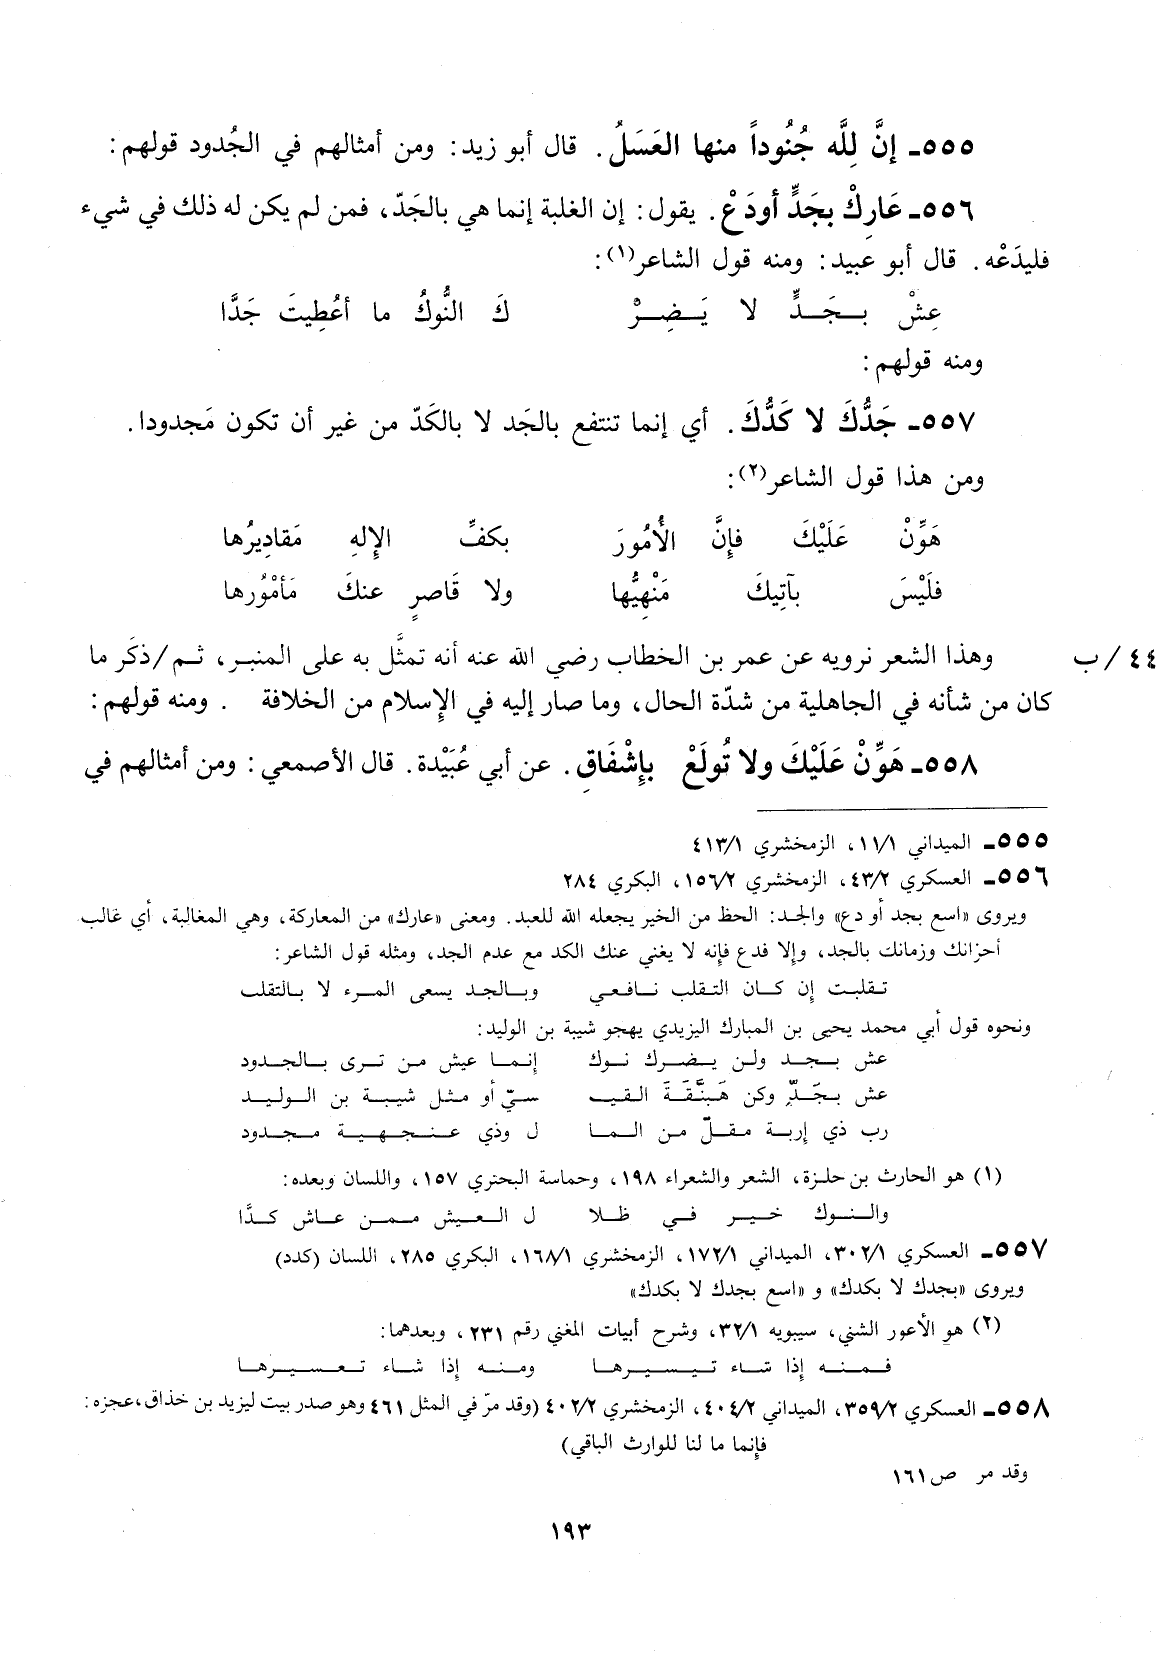 ٥٥٥ـ إنَّ لِلَّه جُنُوداً منها العَسَلُ. قال أبو زيد: ومن أمثالهم في الجُدود قولهم:
٥٥٦ـ عَارِكْ بِجَدٍّ أودَعْ. يقول: إن الغلبة إنما هي بالجَدّ، فمن لم يكن له ذلك في شيء
فليدَعْه. قال أبو عبيد: ومنه قول الشاعر(١):
عِشْ بـجَـدٍّ لا يَـضِـرْ كَ النُّوكُ ما أعُطِيتَ جَدَّا
ومنه قولهم:
٥٥٧ـ جَدُّكَ لا كَدُّكَ. أي إنما تنتفع بالجَد لا بالكَدّ من غير أن تكون مَجدودا.
ومن هذا قول الشاعر(٢):
هَوِّنْ عَلَيْكَ فإنَّ الأُمُورَ بكفِّ الإِلهِ مَقادِيرُها
فلَيْسَ بآتِيكَ مَنْهِيُّها ولا قَاصرٍ عنكَ مَأمْوُرها
٤٤/ب وهذا الشعر نرويه عن عمر بن الخطاب رضي الله عنه أنه تمثَّل به على المنبر، ثم/ذكَر ما
كان من شأنه في الجاهلية من شدّة الحال، وما صار إليه في الإسلام من الخلافة . ومنه قولهم:
٥٥٨ـ هَوِّنْ عَلَيْكَ ولا تُولَعْ بإِشْفَاقِ. عن أبي عُبَيْدة. قال الأصمعي: ومن أمثالهم في
٥٥٥ـ الميداني ١١/١، الزمخشري ٤١٣/١
٥٥٦ـ العسكري ٤٣/٢، الزمخشري ١٥٦/٢، البكري ٢٨٤
ويروى «اسع بجد أو دع» والجد: الحظ من الخير يجعله الله للعبد. ومعنى «عارك» من المعاركة، وهي المغالبة، أي غالب
أحزانك وزمانك بالجد، وإلا فدع فإنه لا يغني عنك الكد مع عدم الجد، ومثله قول الشاعر:
تـقلبت إن كـان التـقلب نـافـعي وبـالجـد يسعى المـرء لا بـالتقلب
ونحوه قول أبي محمد يحيى بن المبارك اليزيدي يهجو شيبة بن الوليد:
عش بـجـد ولـن يـضـرك نـوك إنـمـا عيش مـن تـرى بـالجـدود
عش بـجَـدٍّ وكن هَبَنَّقَةَ القيـ ـسيّ أو مـثـل شيبـة بن الـوليـد
رب ذي إربـة مـقـلّ مـن الـمـا ل وذي عـنـجـهـيـة مـجـدود
(١) هو الحارث بن حلزة، الشعر والشعراء ١٩٨، وحماسة البحتري ١٥٧، واللسان وبعده:
والـنـوك خـيـر فـي ظـلا ل الـعـيش مـمـن عـاش كـدَّا
٥٥٧ـ العسكري ٣٠٢/١، الميداني ١٧٢/١، الزمخشري ١٦٨/١، البكري ٢٨٥، اللسان (كدد)
ويروى «بجدك لا بكدك» و «اسع بجدك لا بكدك»
(٢) هو الأعور الشني، سيبويه ٣٢/١، وشرح أبيات المغني رقم ٢٣١، وبعدهما:
فـمـنـه إذا شـاء تـيـسـيـرهـا ومـنـه إذا شـاء تـعـسـيـرهـا
٥٥٨ـ العسكري ٣٥٩/٢، الميداني ٤٠٤/٢، الزمخشري ٤٠٢/٢ (وقد مرّ في المثل ٤٦١ وهو صدر بيت ليزيد بن خذاق، عجزه:
فإنما ما لنا للوارث الباقي)
وقد مر ص١٦١
١٩٣